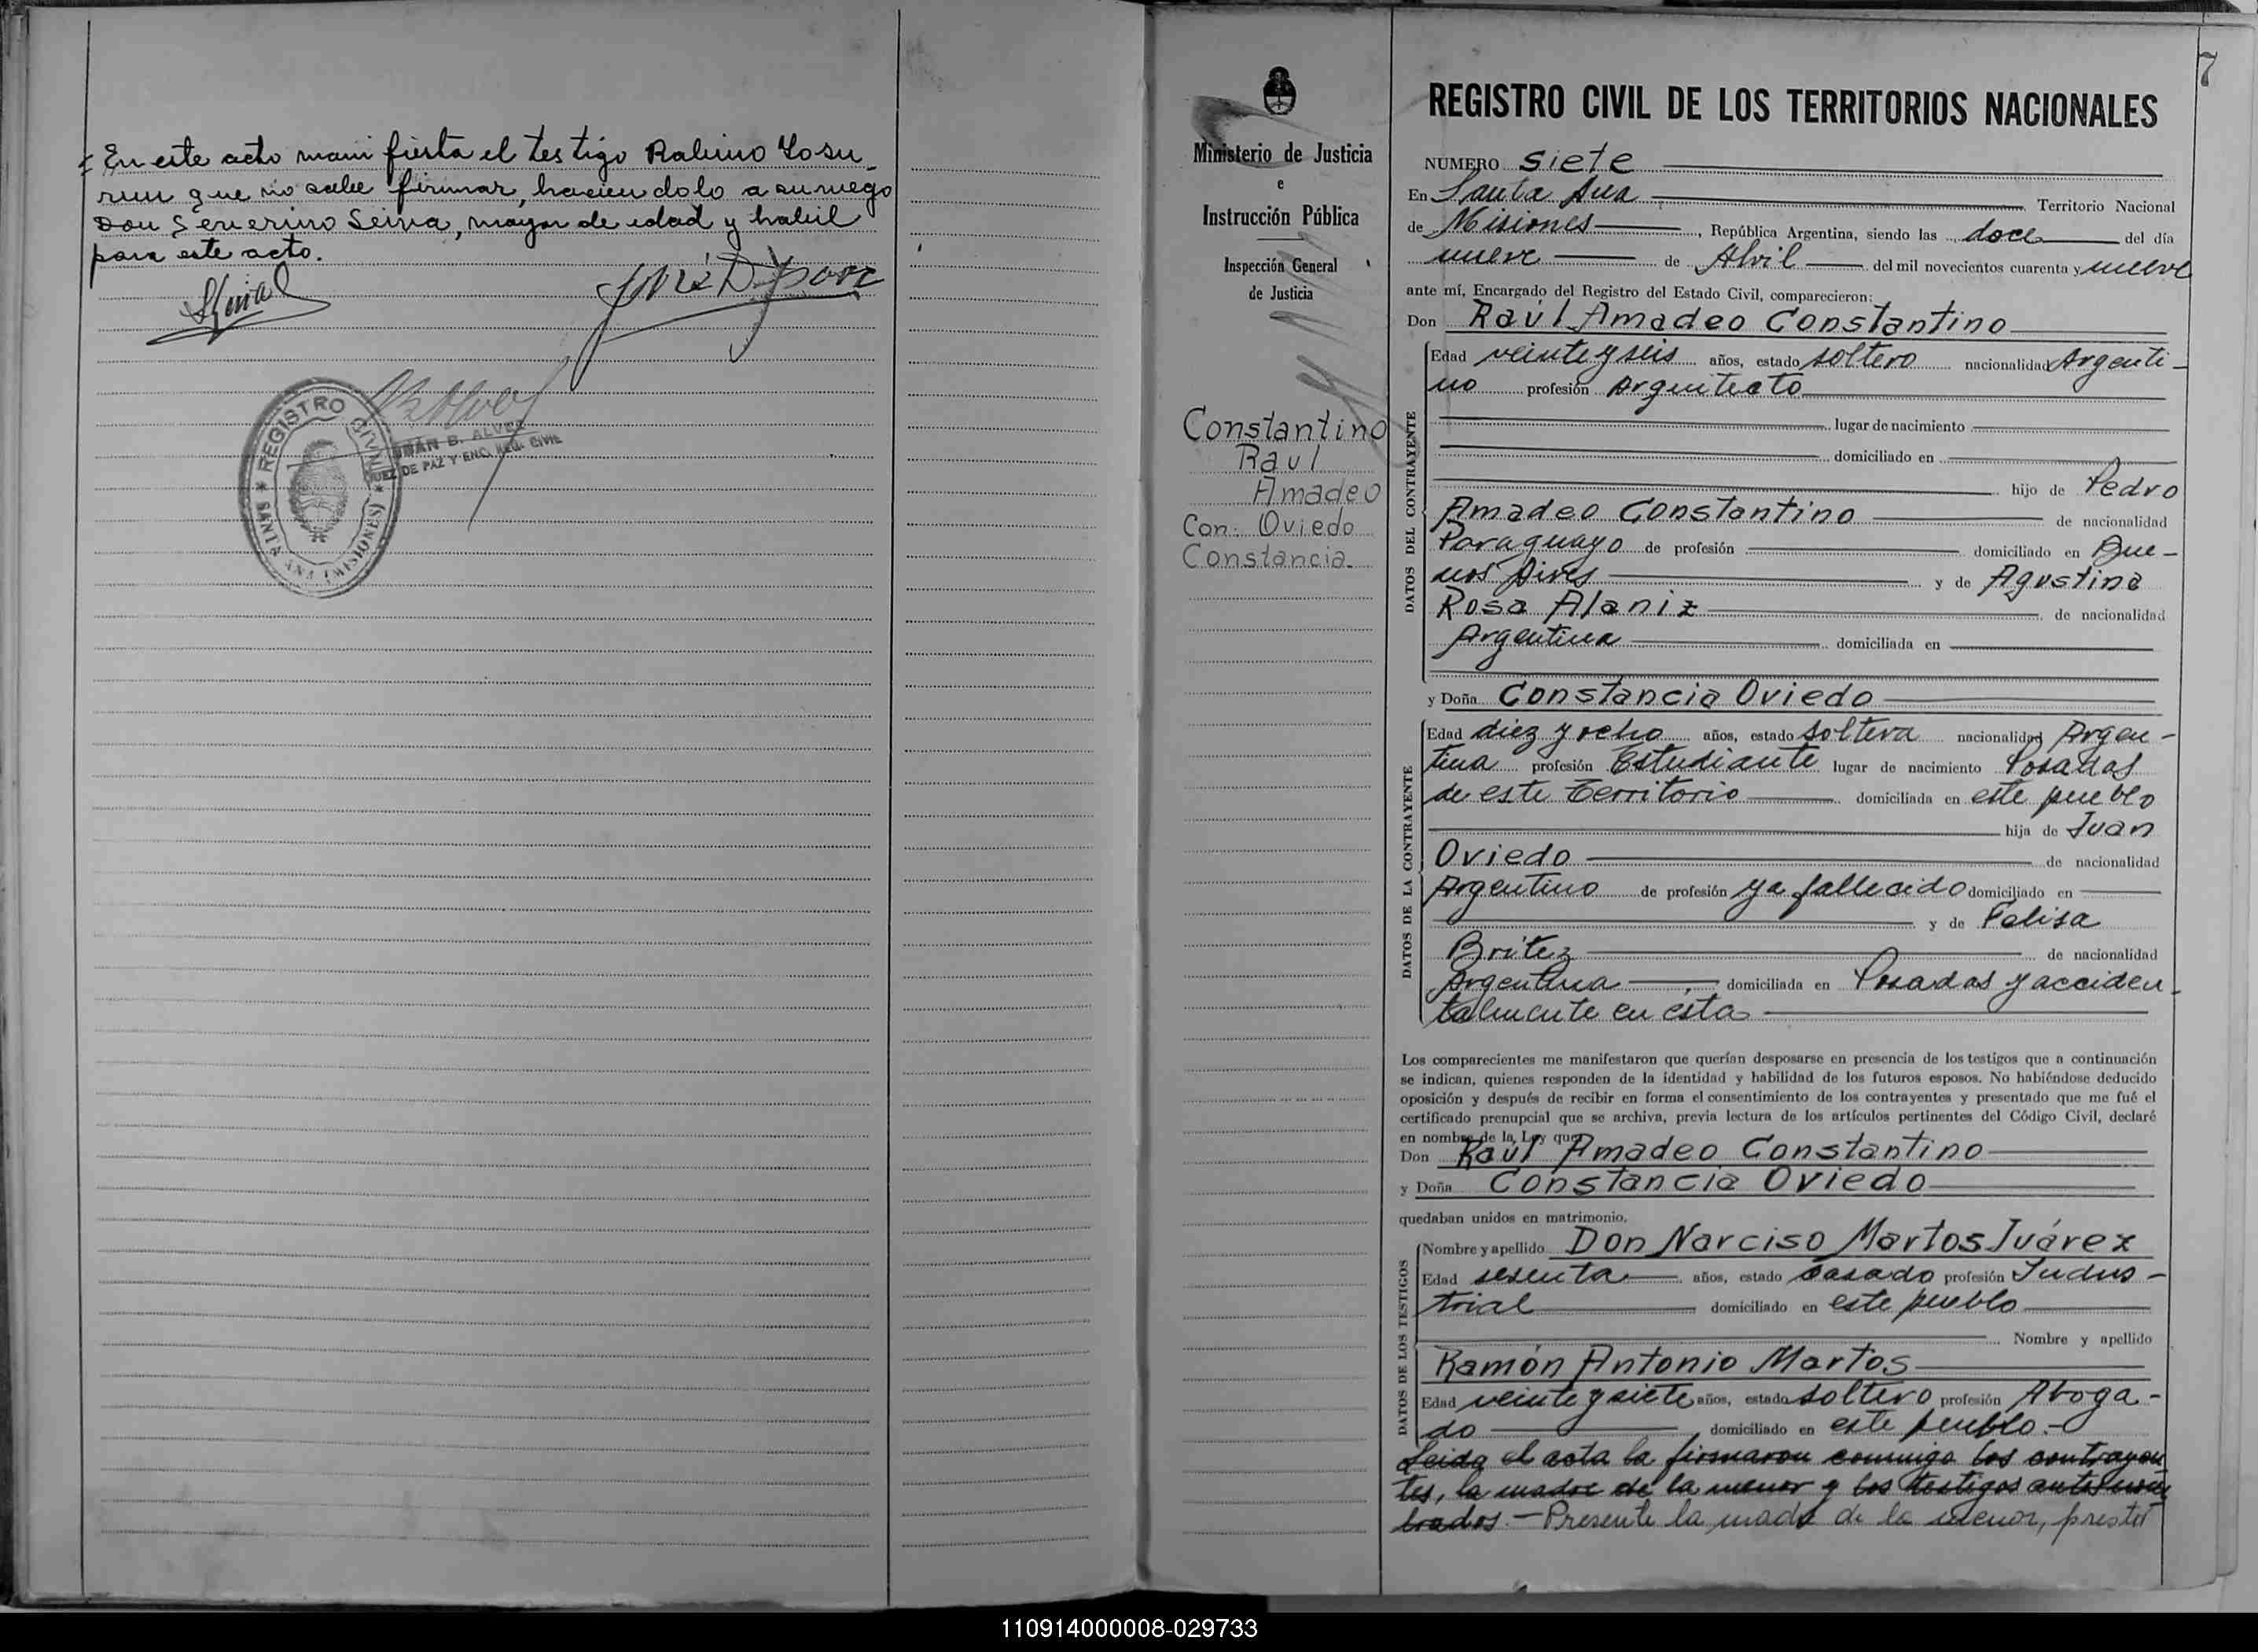 = En este acto manifiesta el testigo Rabino Yosu-
run que no sabe firmar, haciendolo a su ruego
Don Severino Seiva, mayor de edad y habil
para este acto.
REGISTRO CIVIL
SANTA ANA (MISIONES)
B. ALVES
JUEZ DE PAZ Y ENC. REG. CIVIL
7
Ministerio de Justicia
e
Instrucción Pública
Inspección General
de Justicia
Constantino
Raul
Amadeo
Con: Oviedo
Constancia.
REGISTRO CIVIL DE LOS TERRITORIOS NACIONALES
NÚMERO siete
En Santa Ana Territorio Nacional
de Misiones, República Argentina, siendo las doce del día
nueve de Abril del mil novecientos cuarenta y nueve
ante mí, Encargado del Registro del Estado Civil, comparecieron:
Don Raúl Amadeo Constantino
DATOS DEL CONTRAYENTE
Edad veinte y seis años, estado soltero nacionalidad Argenti-
no profesión Arquitecto
lugar de nacimiento
domiciliado en
hijo de Pedro
Amadeo Constantino de nacionalidad
Paraguayo de profesión domiciliado en Bue-
nos Aires y de Agustina
Rosa Alaniz de nacionalidad
Argentina domiciliada en
y Doña Constancia Oviedo
DATOS DE LA CONTRAYENTE
Edad diez y ocho años, estado soltera nacionalidad Argen-
tina profesión Estudiante lugar de nacimiento Posadas
de este territorio domiciliada en este pueblo
hija de Juan
Oviedo de nacionalidad
Argentino de profesión ya fallecido domiciliado en
y de Felisa
Britez de nacionalidad
Argentina domiciliada en Posadas y acciden-
talmente en ésta
Los comparecientes me manifestaron que querían desposarse en presencia de los testigos que a continuación
se indican, quienes responden de la identidad y habilidad de los futuros esposos. No habiéndose deducido
oposición y después de recibir en forma el consentimiento de los contrayentes y presentado que me fué el
certificado prenupcial que se archiva, previa lectura de los artículos pertinentes del Código Civil, declaré
en nombre de la Ley que
Don Raúl Amadeo Constantino
y Doña Constancia Oviedo
quedaban unidos en matrimonio.
DATOS DE LOS TESTIGOS
Nombre y apellido Don Narciso Martos Juárez
Edad sesenta años, estado casado profesión Indus-
trial domiciliado en este pueblo
Nombre y apellido
Ramón Antonio Martos
Edad veinte y siete años, estado soltero profesión Aboga-
do domiciliado en este pueblo.-
Leida el acta la firmaron conmigo los contrayen-
tes, la madre de la menor y los testigos antes nom-
brados.- Presente la madre de la menor, prestó
110914000008-029733